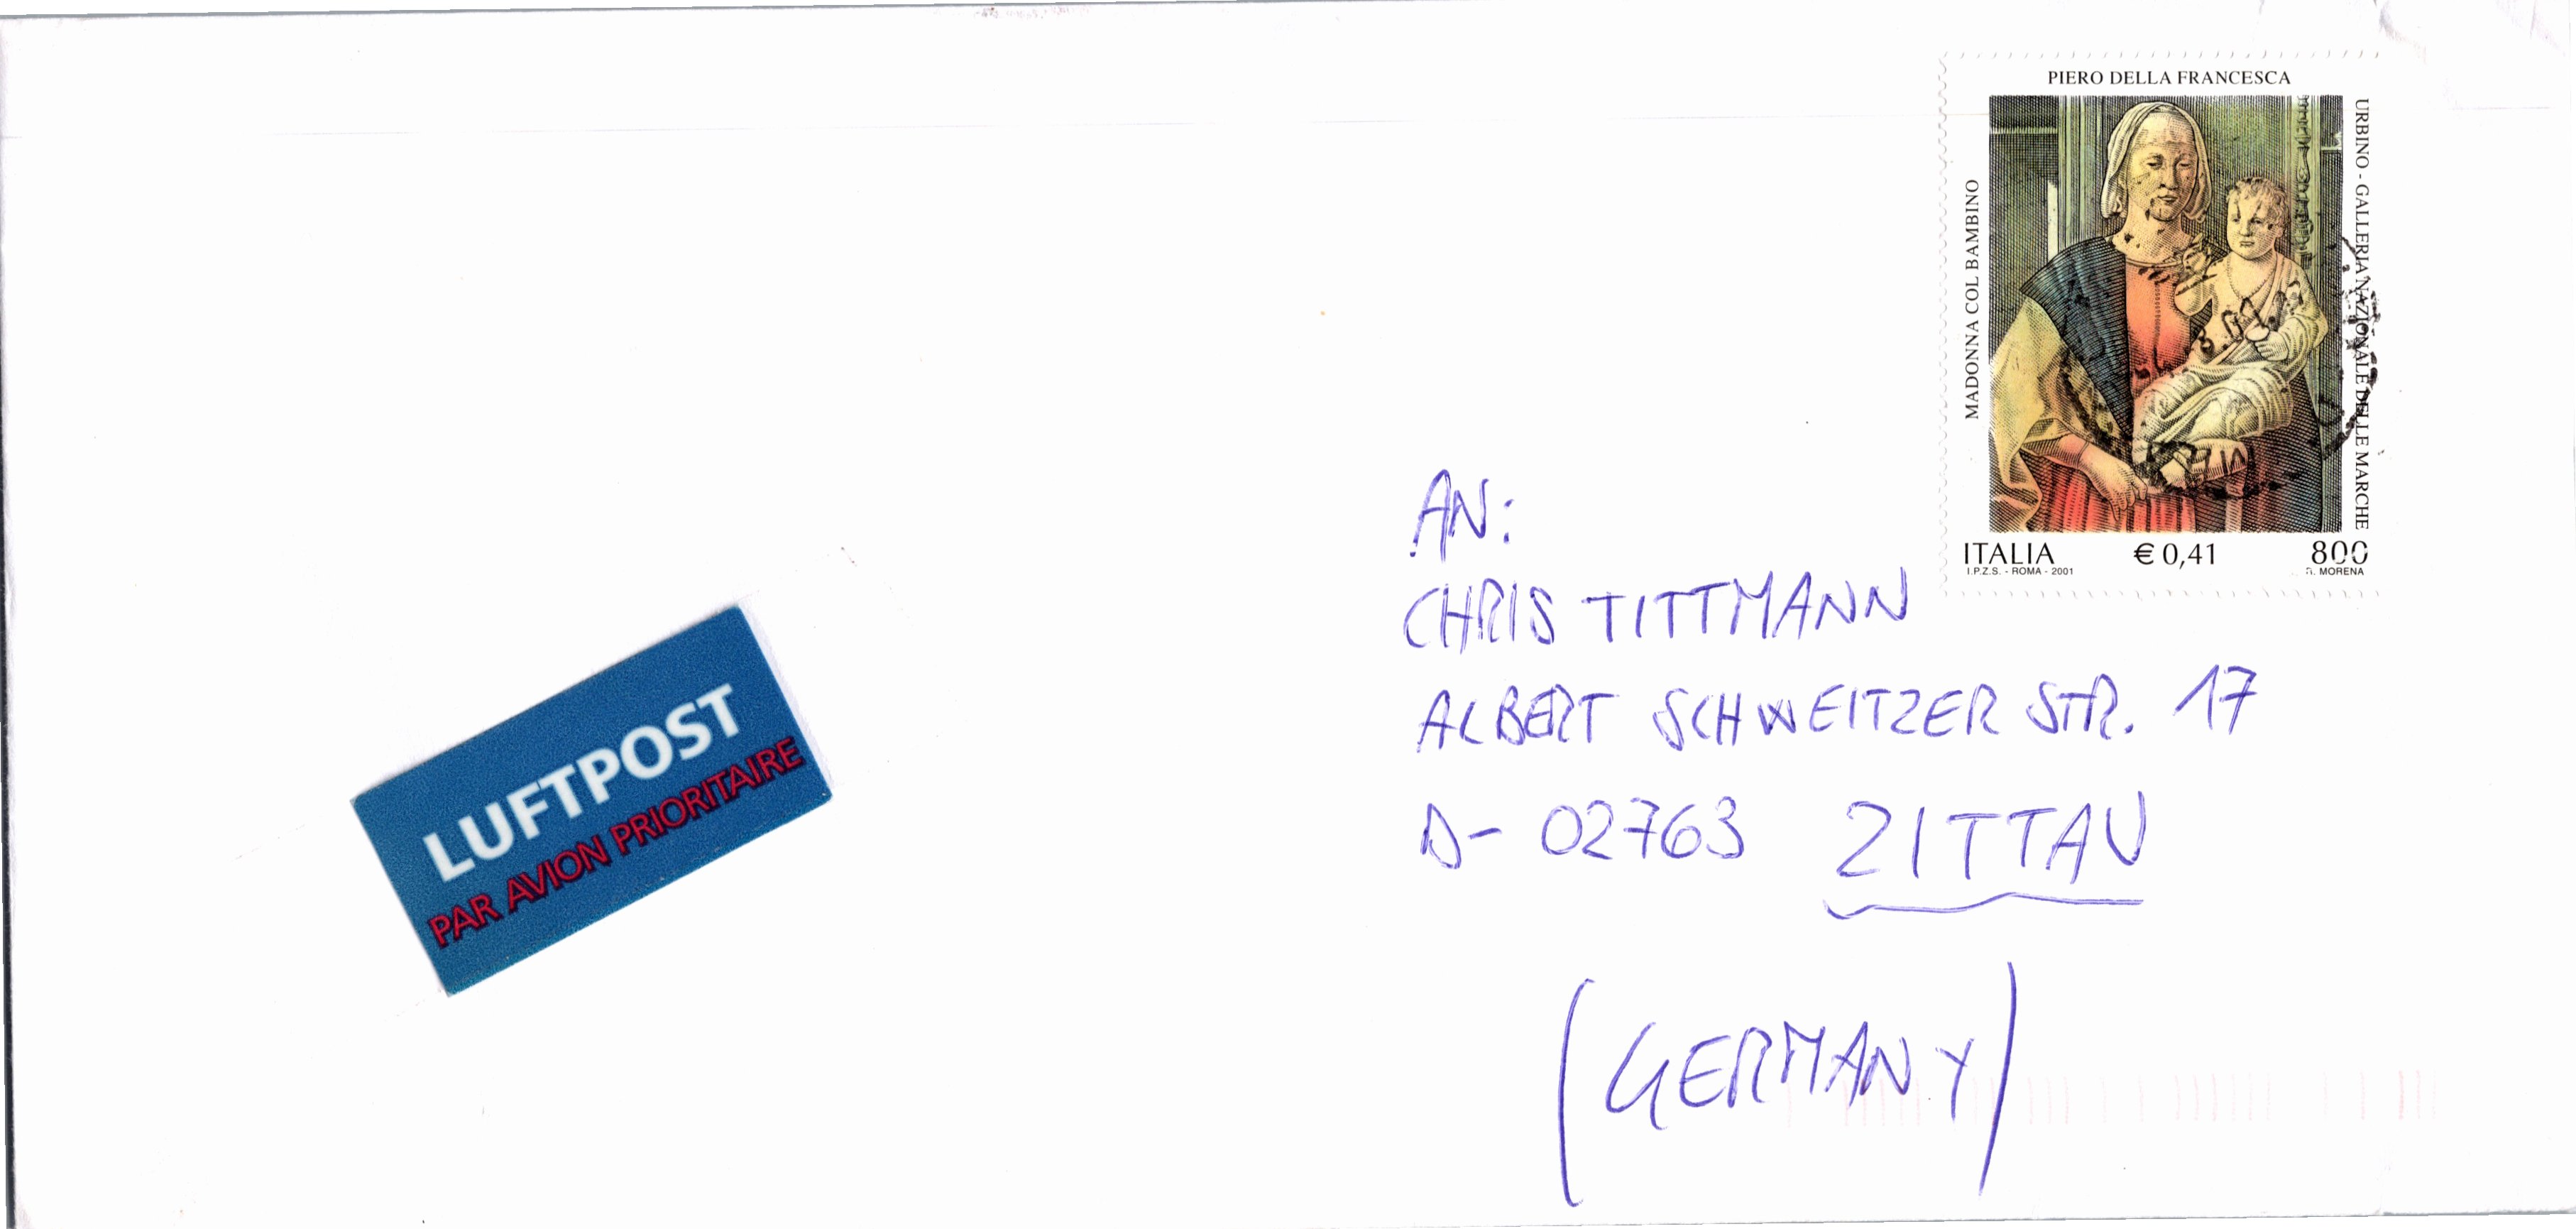 PIERO DELLA FRANCESCA
MADONNA COL BAMBINO
URBINO - GALLERIA NAZIONALE DELLE MARCHE
ITALIA € 0,41 800
I.P.Z.S. - ROMA - 2001 R. MORENA
AN:
CHRIS TITTMANN
ALBERT SCHWEITZER STR. 17
D- 02763 ZITTAU
(GERMANY)
LUFTPOST
PAR AVION PRIORITAIRE